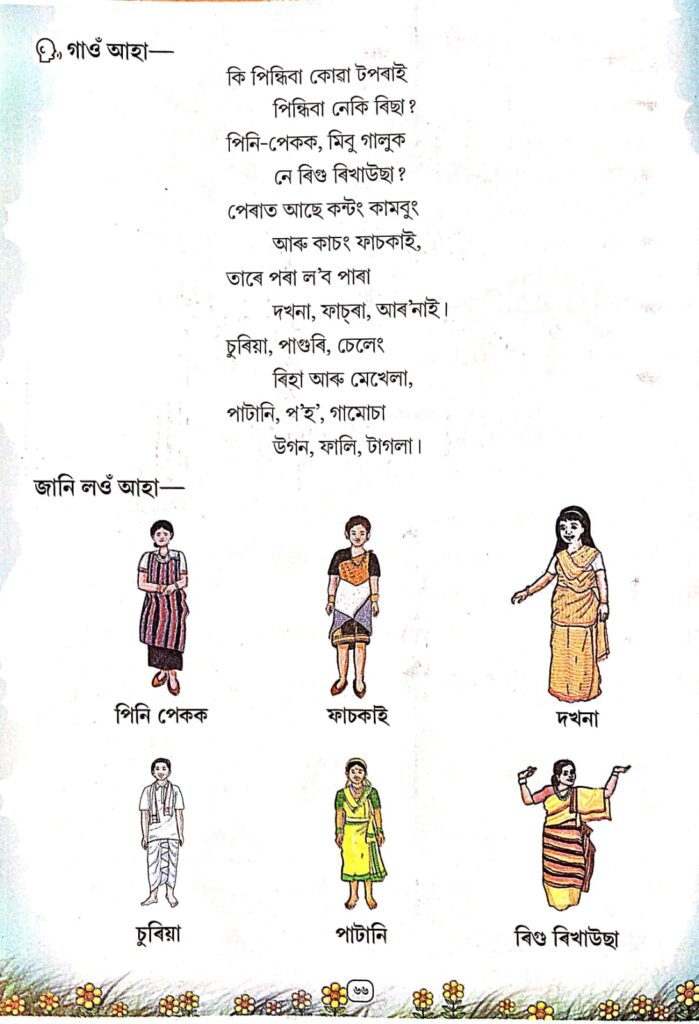 গাওঁ আহা—
কি পিন্ধিবা কোৱা টপৰাই
পিন্ধিবা নেকি ৰিছা?
পিনি-পেকক, মিবু গালুক
নে ৰিগু ৰিখাউছা?
পেৰাত আছে কন্টং কামবুং
আৰু কাচং ফাচকাই,
তাৰে পৰা ল'ব পাৰা
দখনা, ফাচ্ৰা, আৰ'নাই।
চুৰিয়া, পাগুৰি, চেলেং
ৰিহা আৰু মেখেলা,
পাটানি, প'হ', গামোচা
উগন, ফালি, টাগলা।
জানি লওঁ আহা—
পিনি পেকক ফাচকাই দখনা
চুৰিয়া পাটানি ৰিগু ৰিখাউছা
৬৬